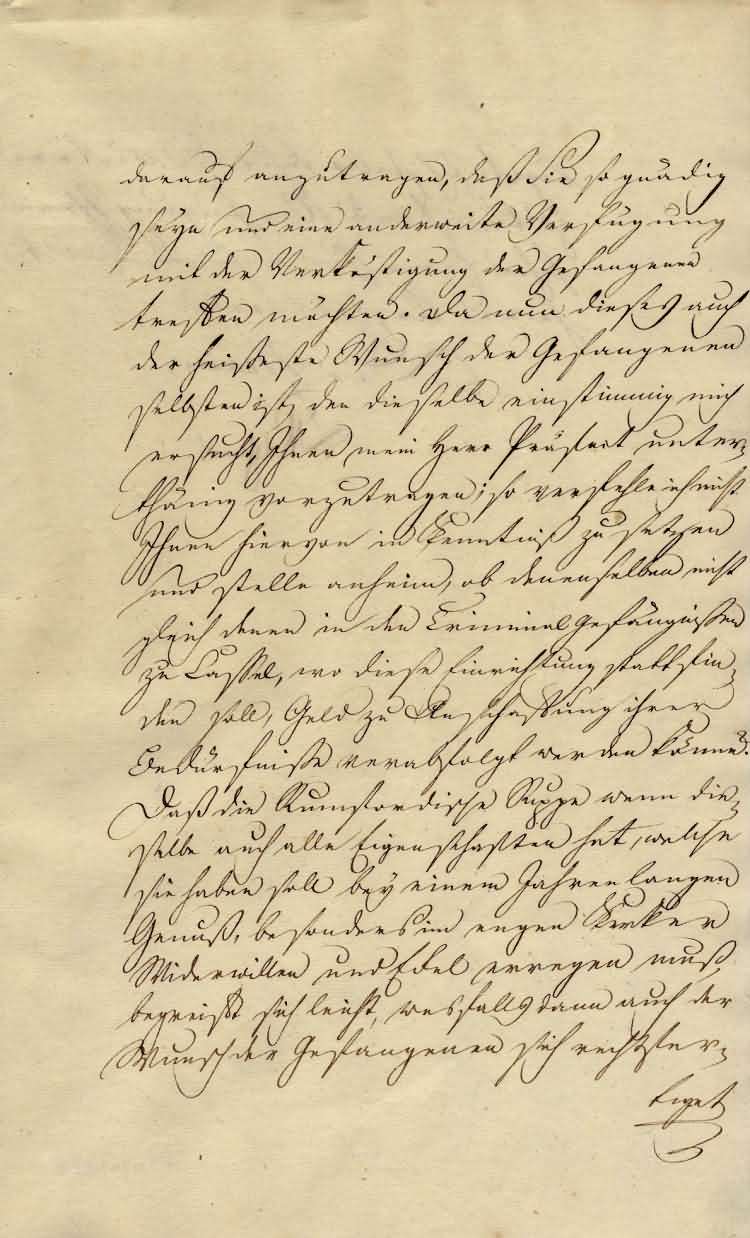 darauf anzutragen, daß Sie so gnädig
seyn und eine anderweite Verfügung
mit der Verköstigung der Gefangenen
treffen möchten. Da nun dieses auch
der heißeste Wunsch der Gefangenen
selbsten ist, den dieselbe einstimmig mich
ersucht, Ihnen mein Herr Präfect unter-
thänig vorzutragen; so verfehle ich nicht
Ihnen hiervon in Kenntniß zu setzen
und stelle anheim, ob denenselben nicht
gleich denen in den Criminalgefängnissen
zu Cassel, wo diese Einrichtung stattfin-
den soll, Geld zu Anschaffung ihrer
Bedürfnisse verabfolgt werden könne?
Daß die Rumfordische Suppe wenn die-
selbe auch alle Eigenschaften hat, welche
sie haben soll bey einem Jahrenlangen
Genuß, besonders im engen Kerker
Widerwillen und Eckel erregen muß,
begreift sich leicht, wesfalls dann auch der
Wunsch der Gefangenen sich rechtfer-
tiget